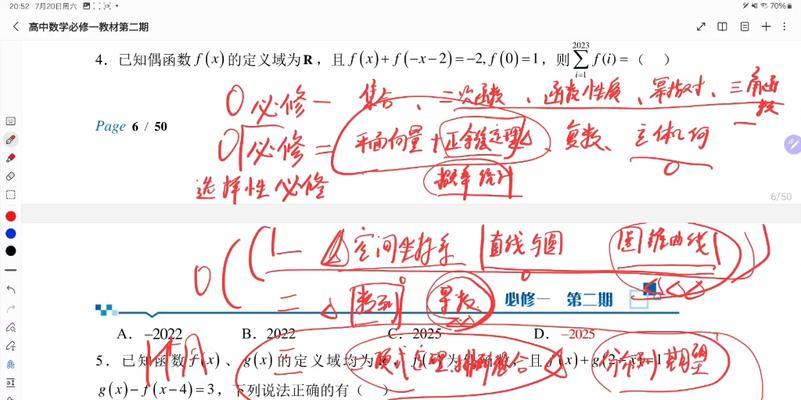 20:52 7月20日周六 70%
高中数学必修一教材第二期
4. 已知偶函数 f(x) 的定义域为 R，且 f(x)+f(−x−2)=−2, f(0)=1，则 \sum_{i=1}^{2023} f(i)=（ ）
必修一 集合、二次函数、函数性质、幂指对、三角函数
Page 6 / 50
必修二 平面向量+正余弦定理 复数、立体几何
选择性必修 概率统计
6/50
一 空间坐标系 直线与圆 圆锥曲线
二 数列 导数 必修一 第二期
A. −2022 B. 2022 C. 2025 D. −2025
三 排列组合 分布列 期望
5. 已知函数 f(x)、g(x) 的定义域均为 且
g(x)−f(x−4)=3，下列说法正确的有（ ）